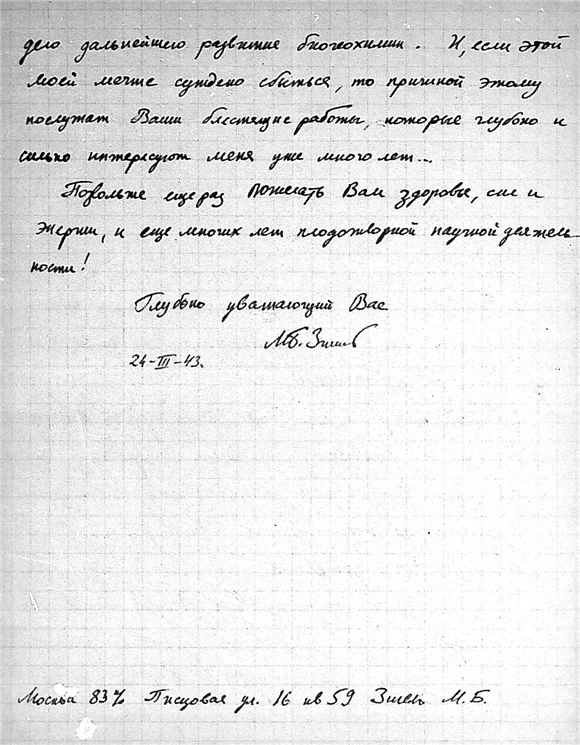 дело дальнейшего развития биогеохимии. И, если этой
моей мечте суждено сбыться, то причиной этому
послужат Ваши блестящие работы, которые глубоко и
сильно интересуют меня уже много лет...
Позвольте еще раз пожелать Вам здоровья, сил и
энергии, и еще многих лет плодотворной научной деятель-
ности!
Глубоко уважающий Вас
М.Б.
24-III-43.
Москва 83 Писцовая ул. 16 кв 59 М.Б.